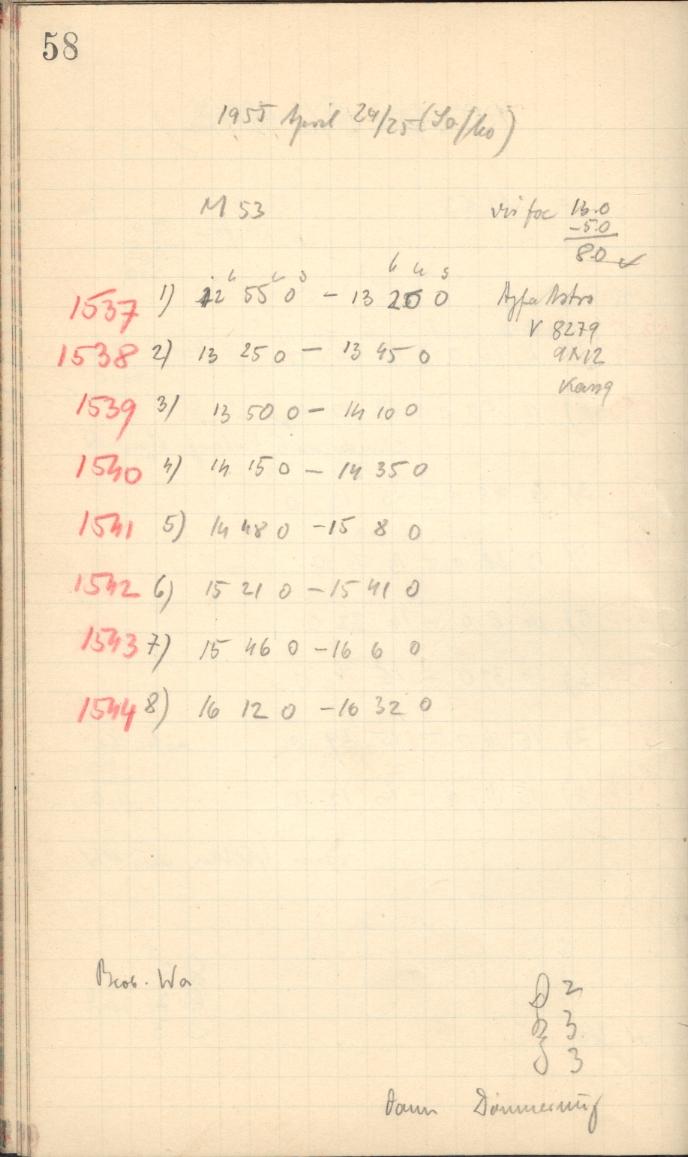 58
1955 April 24/25 (So/Mo)
M 53
vis foc 13.0
-5.0
8.0
h m s h m s
1537 1) 12 55 0 - 13 0
Agfa Astro
V 8279
9x12
1538 2) 13 25 0 - 13 45 0
1539 3) 13 50 0 - 14 10 0
1540 4) 14 15 0 - 14 35 0
1541 5) 14 48 0 - 15 8 0
1542 6) 15 21 0 - 15 41 0
1543 7) 15 46 0 - 16 6 0
1544 8) 16 12 0 - 16 32 0
Beob. Wa
2
3
3
dann Dämmerung